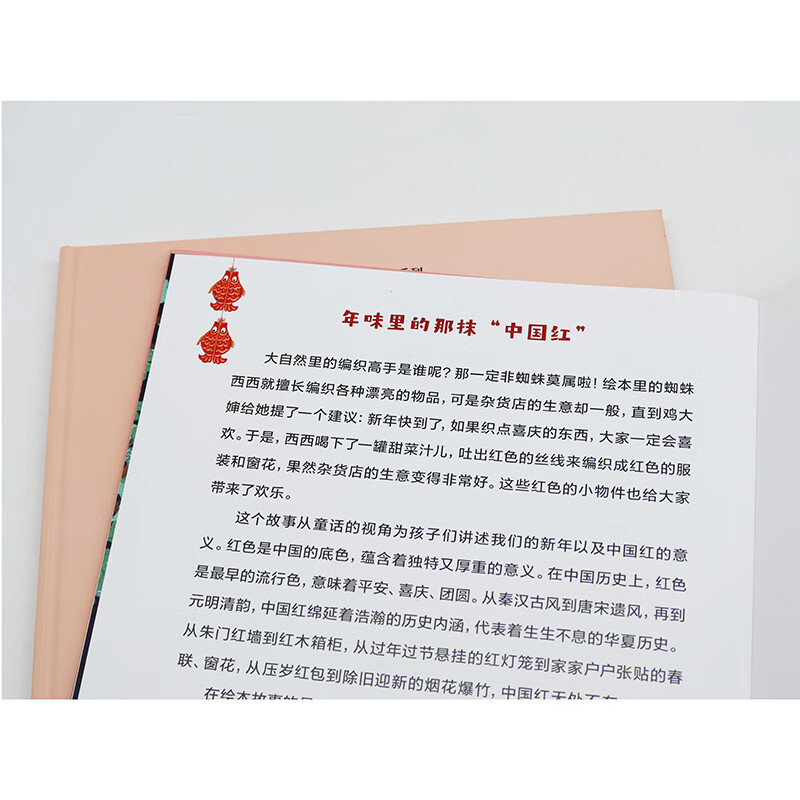 年味里的那抹“中国红”
大自然里的编织高手是谁呢？那一定非蜘蛛莫属啦！绘本里的蜘蛛
西西就擅长编织各种漂亮的物品，可是杂货店的生意却一般，直到鸡大
婶给她提了一个建议：新年快到了，如果织点喜庆的东西，大家一定会喜
欢。于是，西西喝下了一罐甜菜汁儿，吐出红色的丝线来编织成红色的服
装和窗花，果然杂货店的生意变得非常好。这些红色的小物件也给大家
带来了欢乐。
这个故事从童话的视角为孩子们讲述我们的新年以及中国红的意
义。红色是中国的底色，蕴含着独特又厚重的意义。在中国历史上，红色
是最早的流行色，意味着平安、喜庆、团圆。从秦汉古风到唐宋遗风，再到
元明清韵，中国红绵延着浩瀚的历史内涵，代表着生生不息的华夏历史。
从朱门红墙到红木箱柜，从过年过节悬挂的红灯笼到家家户户张贴的春
联、窗花，从压岁红包到除旧迎新的烟花爆竹，中国红无处不在
在绘本故事的